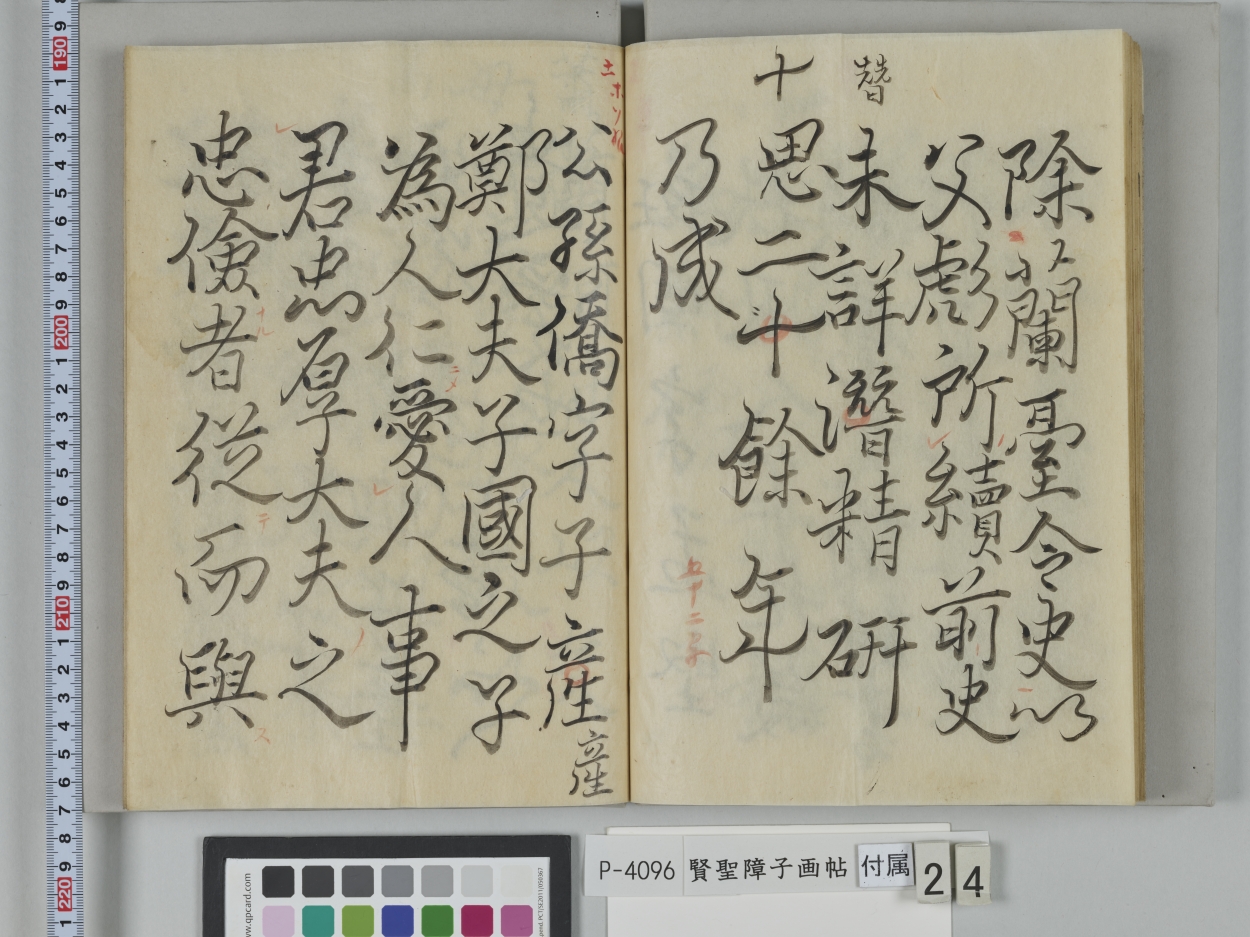 除蘭臺令史以
父彪所續前史
未詳潜精研
思二十餘年
乃成
公孫僑字子產
鄭大夫子國之子
為人仁愛人事
君忠厚子大夫之
忠儉者從而與
P-4096 賢聖障子画帖 付属 2 4